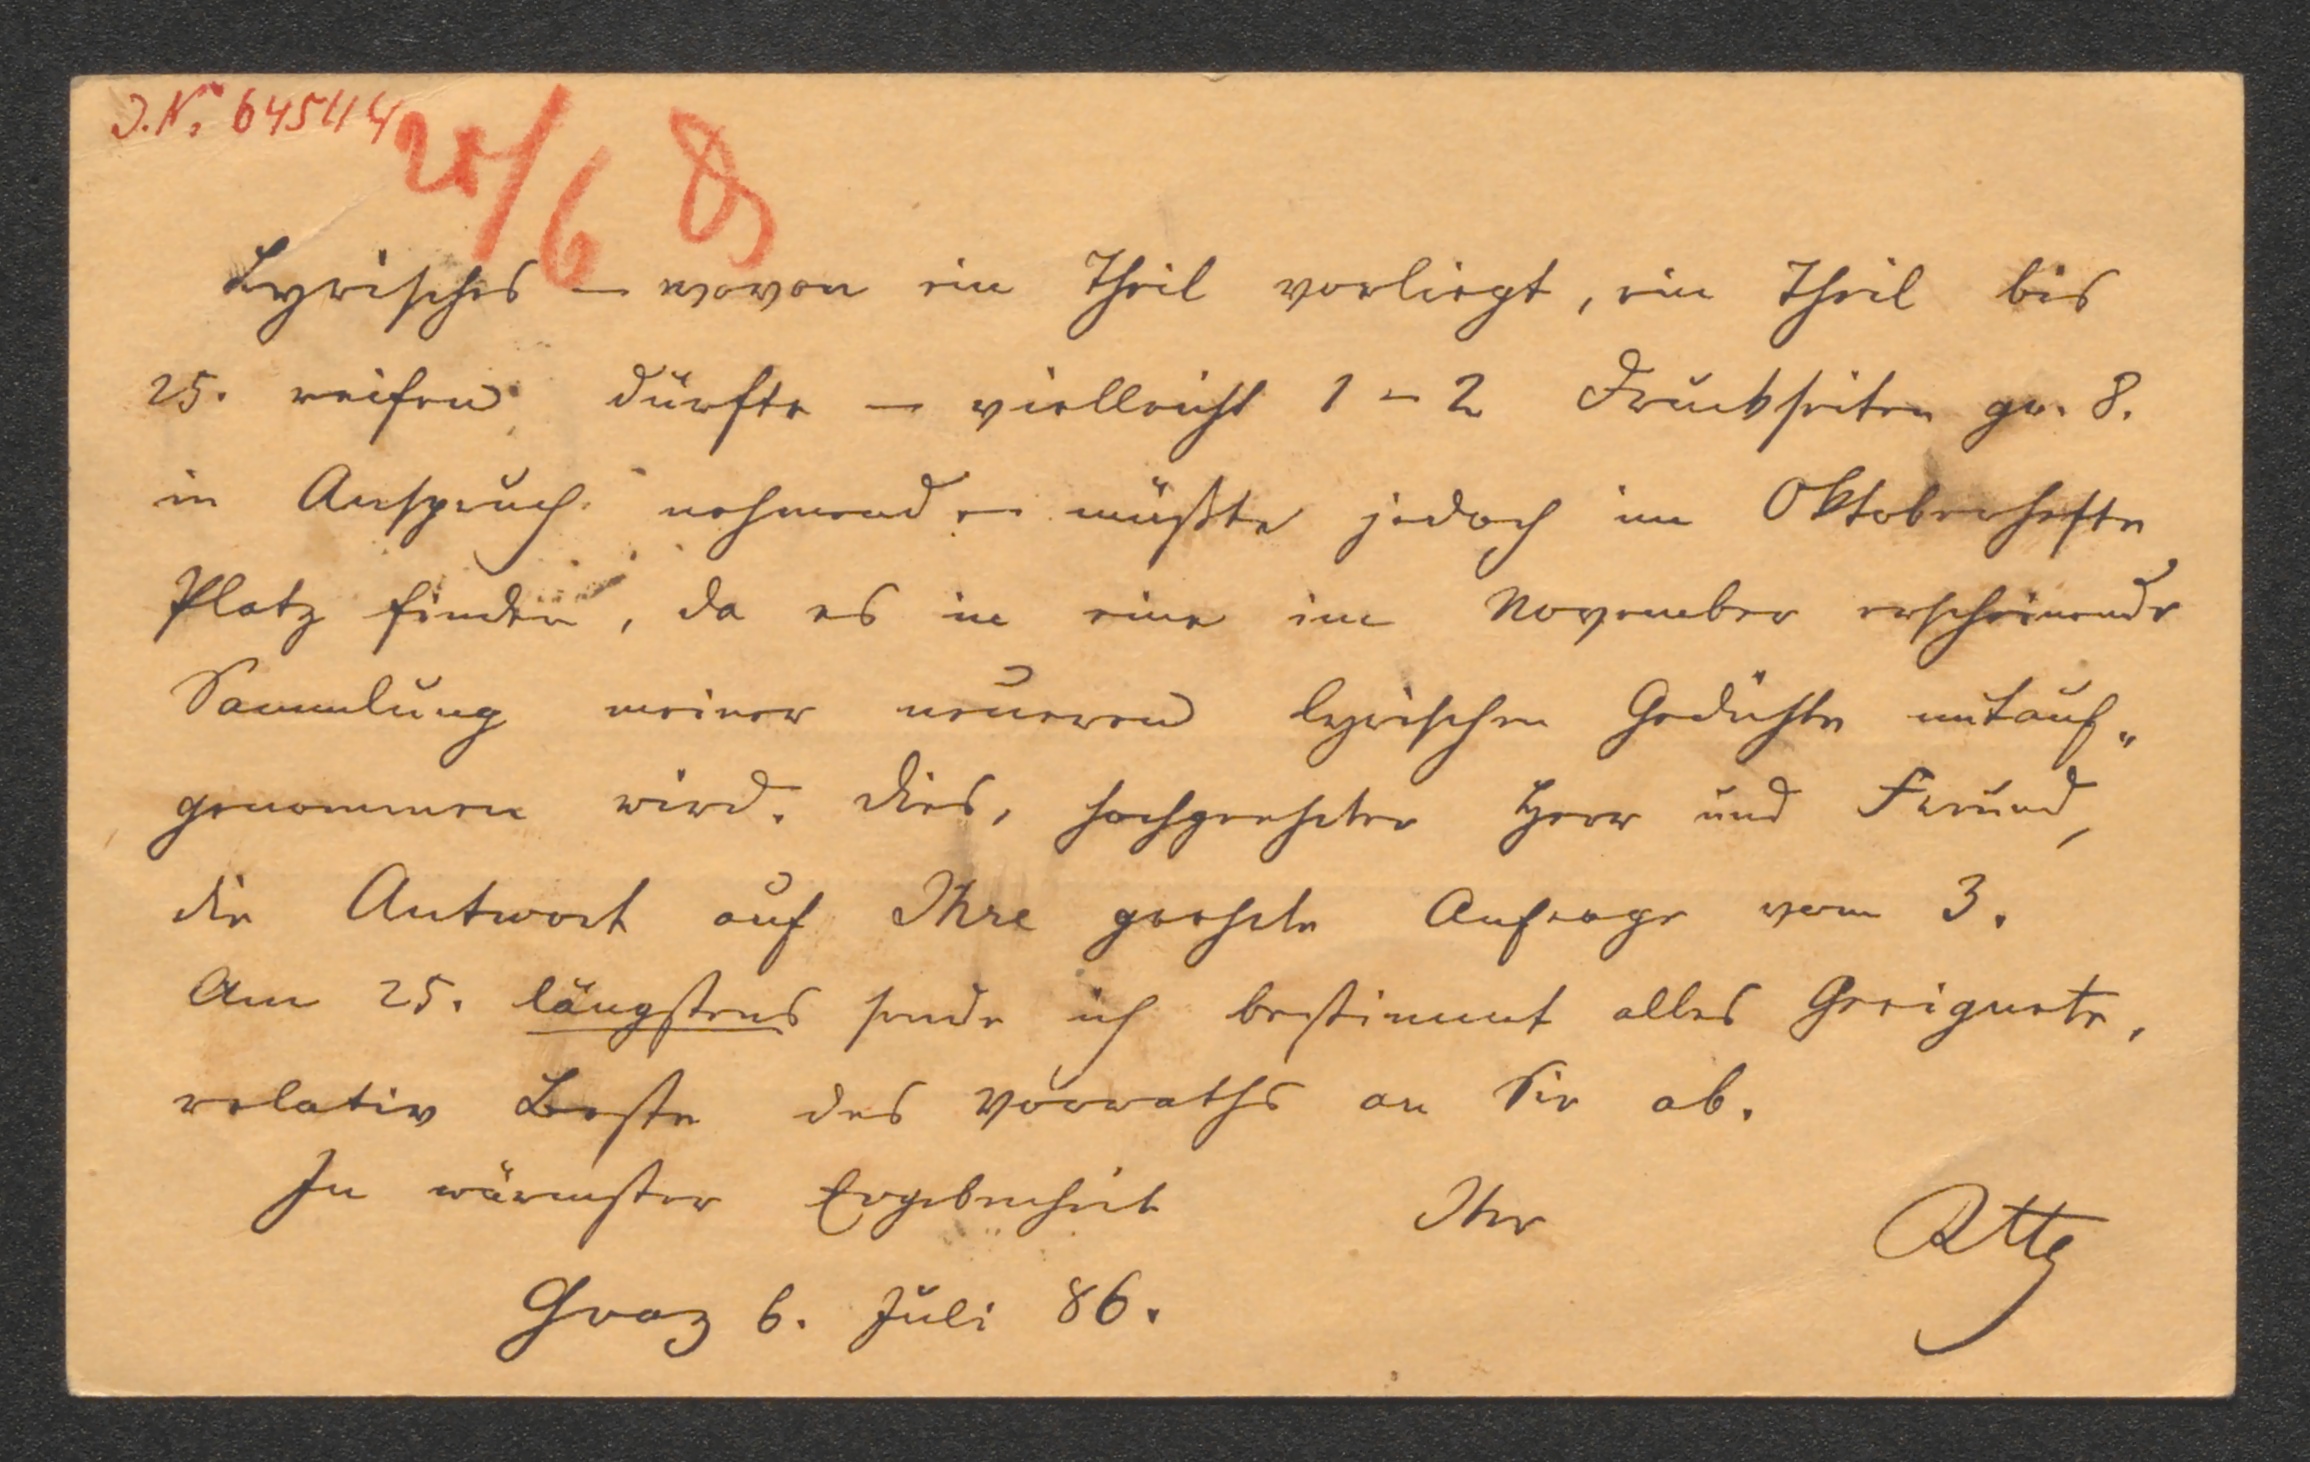 J.N. 64544
25/6
Lyrisches – wovon ein Theil vorliegt, ein Theil bis
25. reifen dürfte – vielleicht 1–2 Druckseiten gr. 8.
in Anspruch nehmend – müßte jedoch im Oktoberhefte
Platz finden, da es in eine im November erscheinende
Sammlung meiner neueren lyrischen Gedichte mitauf-
genommen wird. Dies, hochgeehrter Herr und Freund,
die Antwort auf Ihre geehrte Anfrage vom 3.
Am 25. längstens sende ich bestimmt alles Geeignete,
relativ Beste des Vorraths an Sie ab.
In wärmster Ergebenheit Ihr
Graz 6. Juli 86.